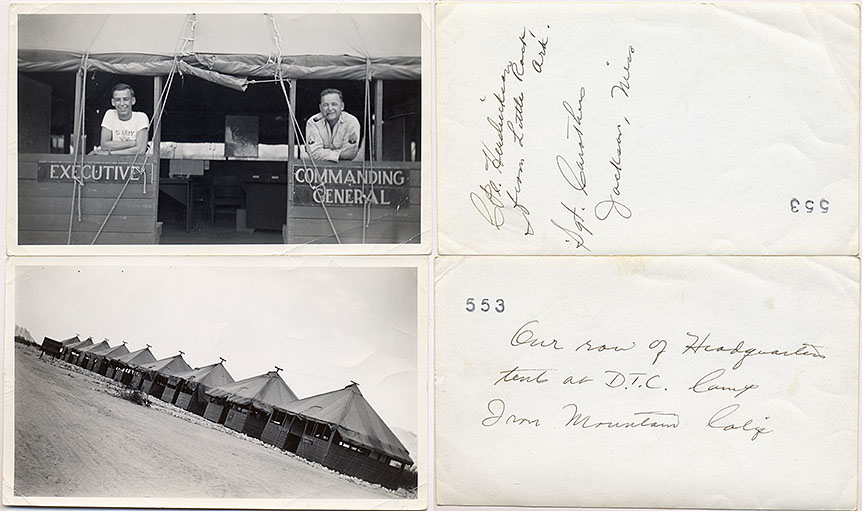 U.S. ARMY
EXECUTIVE
COMMANDING
GENERAL
Cpl.
from Little Rock
Ark.
Sgt. Carothers
Jackson, Miss
553
553
Our row of Headquarters
tents at D.T.C. Camp
Iron Mountain Calif